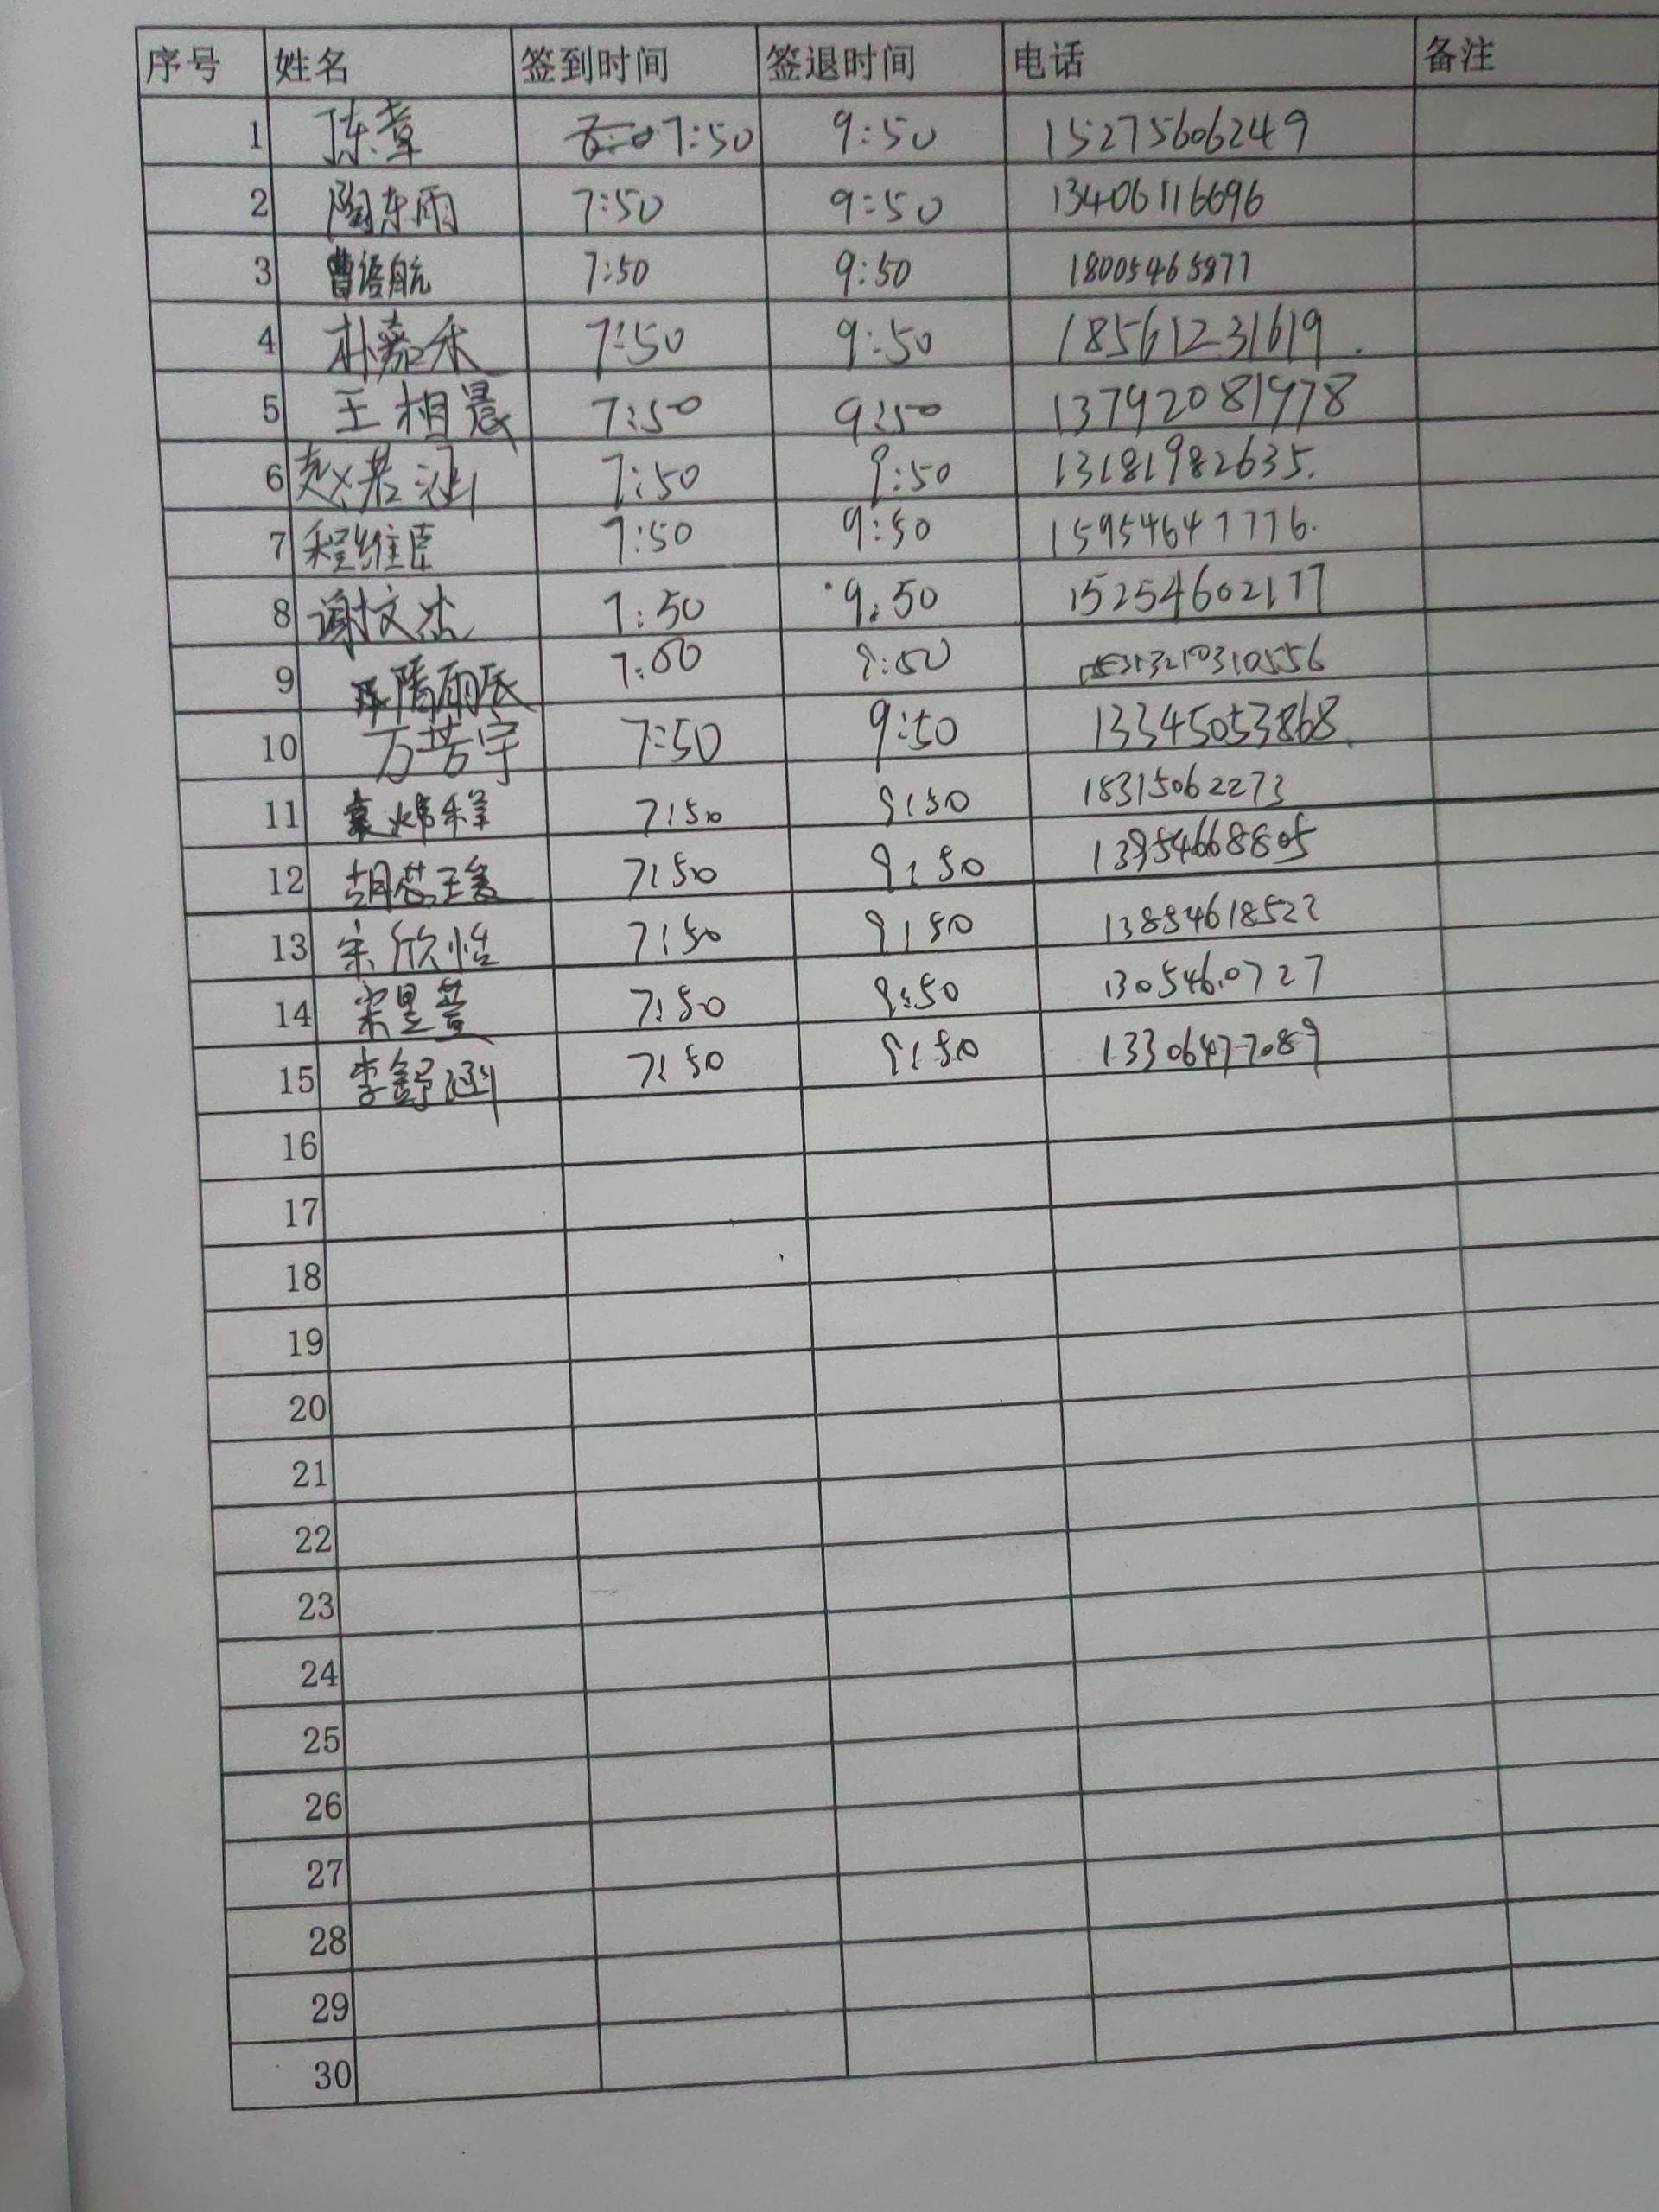 序号 姓名 签到时间 签退时间 电话 备注
1 陈章 7:50 9:50 15275606249
2 陶东雨 7:50 9:50 13406116696
3 曹语航 7:50 9:50 18005465877
4 朴嘉禾 7:50 9:50 18561231619
5 王相晨 7:50 9:50 13792081978
6 赵若涵 7:50 9:50 13181982635
7 程维臣 7:50 9:50 15954647776
8 谢文杰 7:50 9:50 15254602177
9 隋雨辰
10 万芳宇 7:50 9:50 13345053868
11 袁炜祥 7:50 9:50 18315062273
12 7:50 9:50 13954668805
13 宋欣怡 7:50 9:50 13854618522
14 7:50 9:50
15 李舒涵 7:50 9:50 13306477089
16
17
18
19
20
21
22
23
24
25
26
27
28
29
30